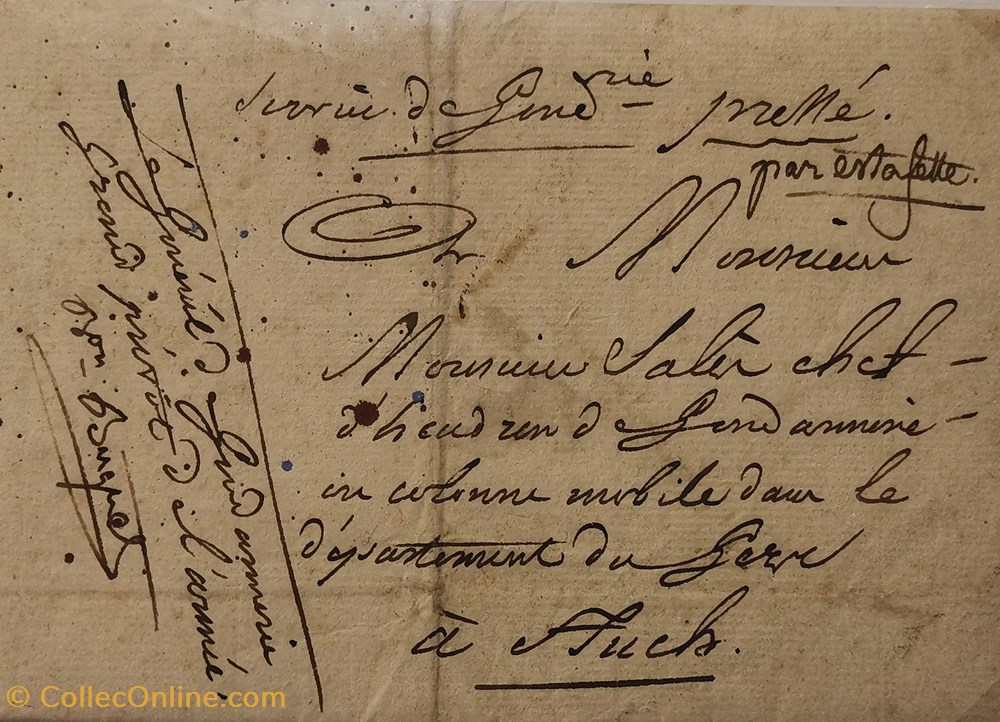 Service de Gend^rie pressé.
par estafette.
A Monsieur
Monsieur Salèr chef
d'Escadron de Gendarmerie
en colonne mobile dans le
département du Gers
à Auch.
Général de Gendarmerie
Grand prévôt de l'armée
Bon
© CollecOnline.com